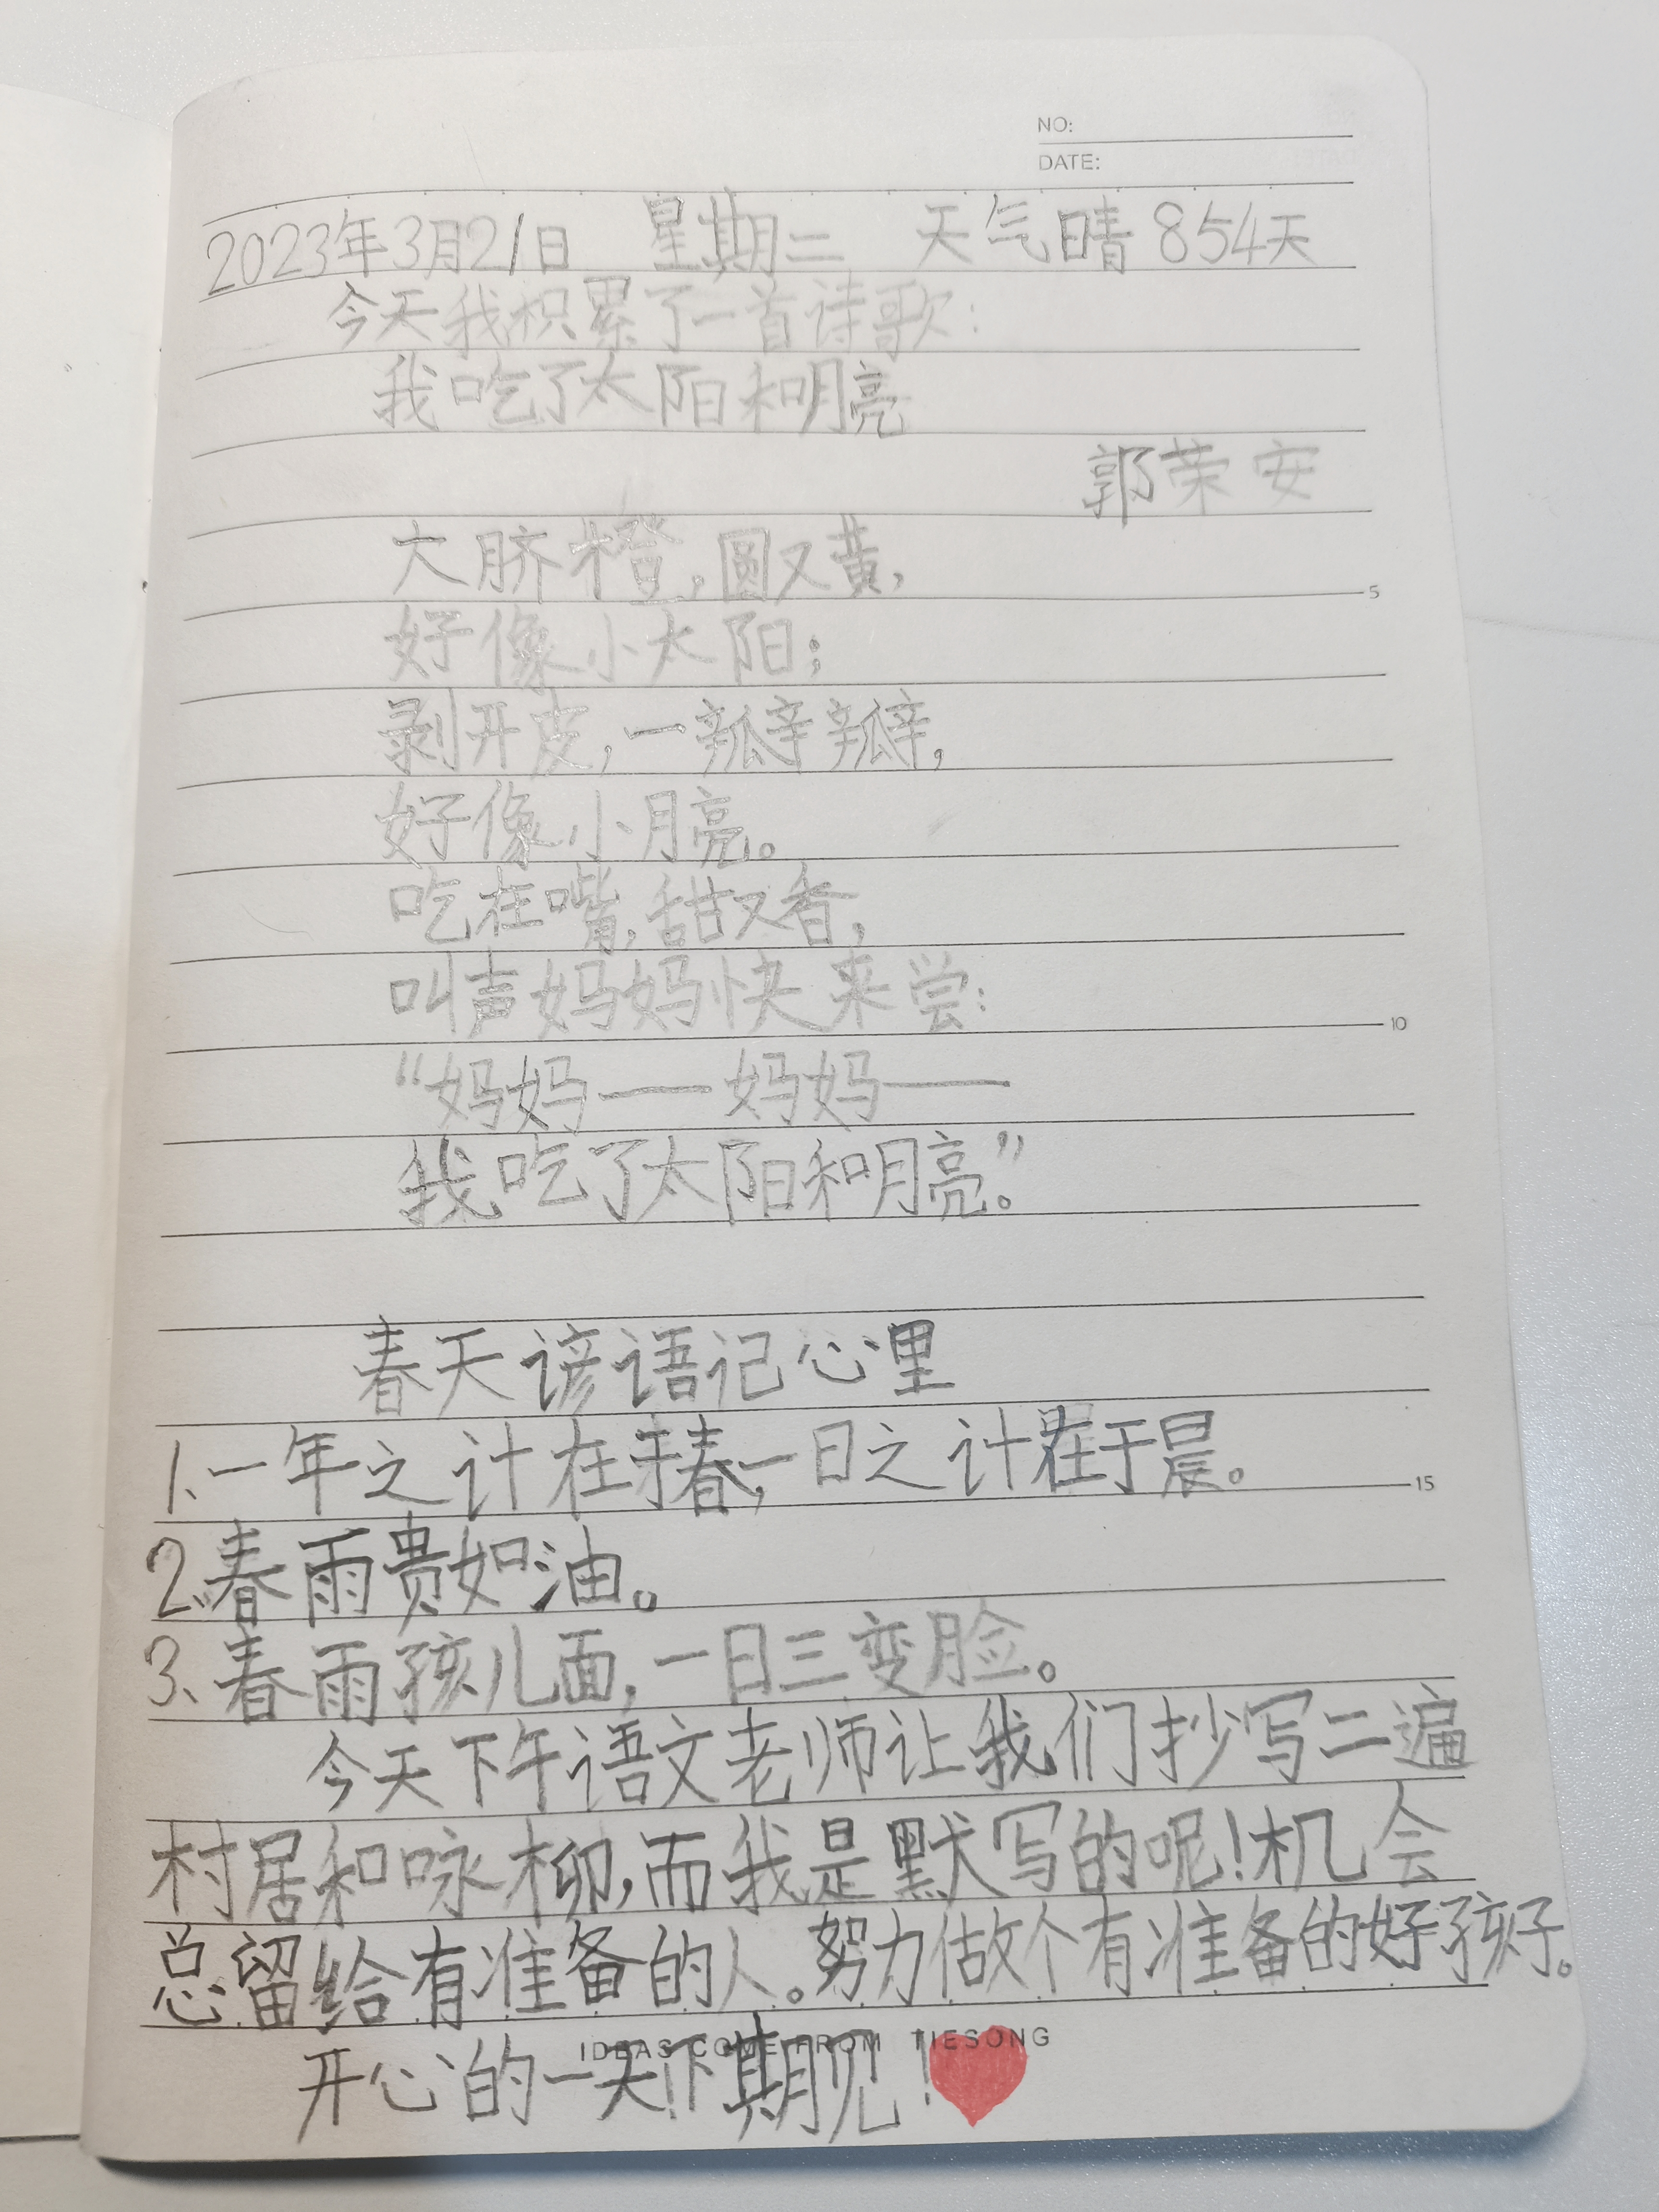 NO:
DATE:
2023年3月21日 星期二 天气晴 854天
今天我积累了一首诗歌:
我吃了太阳和月亮
郭荣安
大脐橙,圆又黄,
5
好像小太阳;
剥开皮,一瓣瓣,
好像小月亮。
吃在嘴,甜又香,
叫声妈妈快来尝:
10
“妈妈——妈妈——
我吃了太阳和月亮。”
春天谚语记心里
1、一年之计在于春,一日之计在于晨。
15
2、春雨贵如油。
3、春雨孩儿面,一日三变脸。
今天下午语文老师让我们抄写二遍
村居和咏柳,而我是默写的呢!机会
总留给有准备的人。努力做个有准备的好孩子。
IDEAS COME FROM TIESONG
开心的一天!下期见!